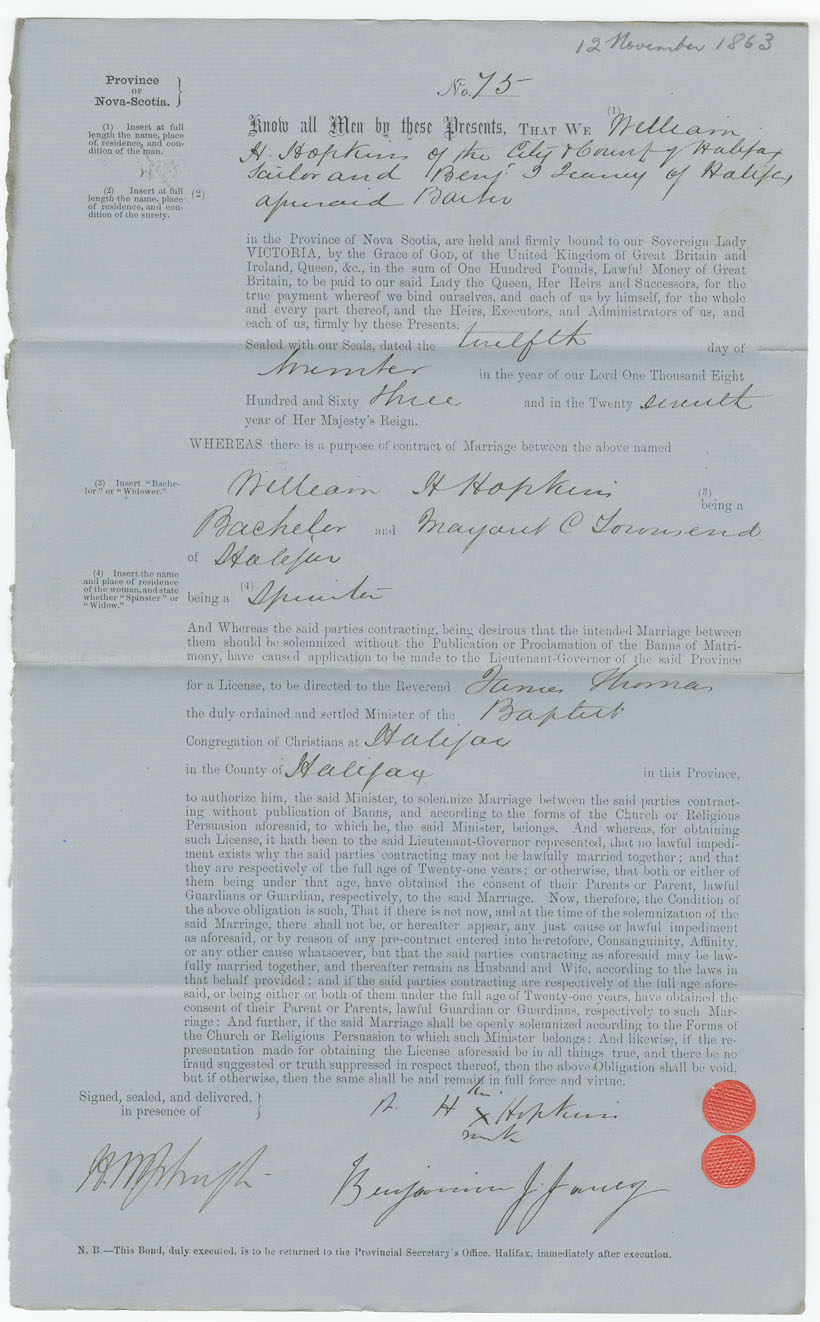 12 November 1863
Province
OF
Nova-Scotia.
No. 75
(1) Insert at full
length the name, place
of residence, and con-
dition of the man.
(2) Insert at full
length the name, place
of residence, and con-
dition of the surety.
Know all Men by these Presents, THAT WE (1) William
H. Hopkins of the City & County of Halifax
Tailor and Benj. of Halifax
(2)
in the Province of Nova Scotia, are held and firmly bound to our Sovereign Lady
VICTORIA, by the Grace of GOD, of the United Kingdom of Great Britain and
Ireland, Queen, &c., in the sum of One Hundred Pounds, Lawful Money of Great
Britain, to be paid to our said Lady the Queen, Her Heirs and Successors, for the
true payment whereof we bind ourselves, and each of us by himself, for the whole
and every part thereof, and the Heirs, Executors, and Administrators of us, and
each of us, firmly by these Presents.
Sealed with our Seals, dated the twelfth day of
November in the year of our Lord One Thousand Eight
Hundred and Sixty three and in the Twenty seventh
year of Her Majesty's Reign.
WHEREAS there is a purpose of contract of Marriage between the above named
(3) Insert "Bache-
lor" or "Widower."
William H Hopkins (3)
being a
Bachelor and Margaret C Townsend
of Halifax
(4) Insert the name
and place of residence
of the woman, and state
whether "Spinster" or
"Widow."
being a (4) Spinster
And Whereas the said parties contracting, being desirous that the intended Marriage between
them should be solemnized without the Publication or Proclamation of the Banns of Matri-
mony, have caused application to be made to the Lieutenant-Governor of the said Province
for a License, to be directed to the Reverend James Thomas
the duly ordained and settled Minister of the Baptist
Congregation of Christians at Halifax
in the County of Halifax in this Province,
to authorize him, the said Minister, to solemnize Marriage between the said parties contract-
ing without publication of Banns, and according to the forms of the Church or Religious
Persuasion aforesaid, to which he, the said Minister, belongs. And whereas, for obtaining
such License, it hath been to the said Lieutenant-Governor represented, that no lawful impedi-
ment exists why the said parties contracting may not be lawfully married together; and that
they are respectively of the full age of Twenty-one years; or otherwise, that both or either of
them being under that age, have obtained the consent of their Parents or Parent, lawful
Guardians or Guardian, respectively, to the said Marriage. Now, therefore, the Condition of
the above obligation is such, That if there is not now, and at the time of the solemnization of the
said Marriage, there shall not be, or hereafter appear, any just cause or lawful impediment
as aforesaid, or by reason of any pre-contract entered into heretofore, Consanguinity, Affinity,
or any other cause whatsoever, but that the said parties contracting as aforesaid may be law-
fully married together, and thereafter remain as Husband and Wife, according to the laws in
that behalf provided; and if the said parties contracting are respectively of the full age afore-
said, or being either or both of them under the full age of Twenty-one years, have obtained the
consent of their Parent or Parents, lawful Guardian or Guardians, respectively to such Mar-
riage: And further, if the said Marriage shall be openly solemnized according to the Forms of
the Church or Religious Persuasion to which such Minister belongs: And likewise, if the re-
presentation made for obtaining the License aforesaid be in all things true, and there be no
fraud suggested or truth suppressed in respect thereof, then the above Obligation shall be void,
but if otherwise, then the same shall be and remain in full force and virtue.
Signed, sealed, and delivered,
in presence of
his
H X Hopkins
mark
Benjamin J.
N. B.—This Bond, duly executed, is to be returned to the Provincial Secretary's Office, Halifax, immediately after execution.